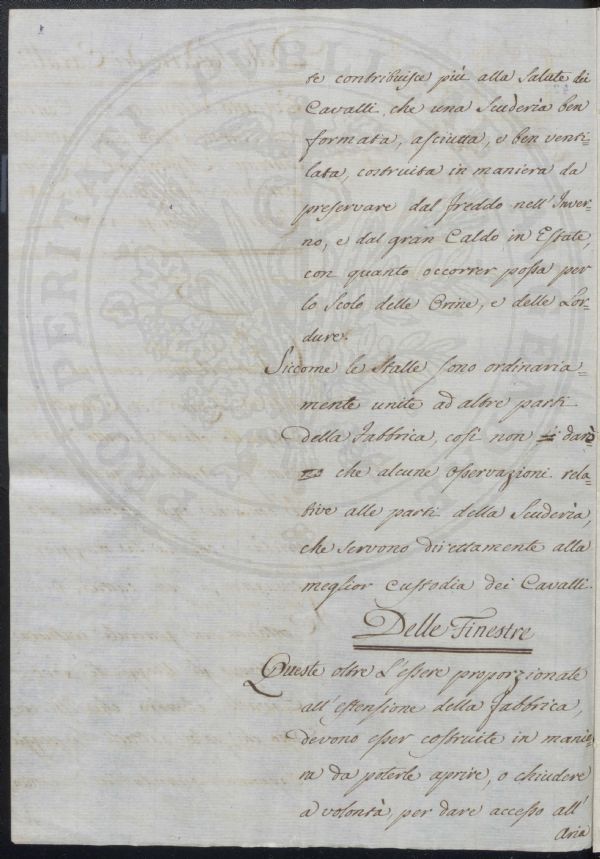 te contribuisce più alla Salute dei
Cavalli, che una Scuderia ben
formata, asciutta, e ben venti=
lata, costruita in maniera da
preservare dal freddo nell'Inver=
no, e dal gran Caldo in Estate,
con quanto occorrer possa per
lo Scolo delle Orine, e delle Lor=
dure.
Siccome le Stalle sono ordinaria=
mente unite ad altre parti
della Fabbrica, così non darò
che alcune osservazioni rela=
tive alle parti della Scuderia,
che servono direttamente alla
meglior custodia dei Cavalli.
Delle Finestre
Queste oltre l'essere proporzionate
all'estensione della fabbrica,
devono esser costruite in manie=
ra da poterle aprire, o chiudere
a volontà, per dare accesso all'
Aria